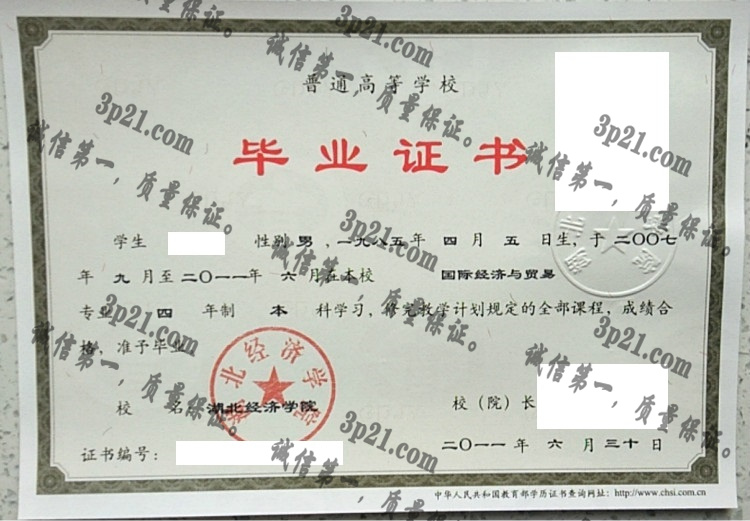 普通高等学校
毕业证书
学生 性别 男 ，一九八五年 四 月 五 日生，于 二〇〇七
年 九 月至 二〇一一年 六 月在本校 国际经济与贸易
专业 四 年制 本 科学习，修完教学计划规定的全部课程，成绩合
格，准予毕业
校 名 湖北经济学院
校（院）长
湖北经济学院
证书编号：
二〇一一年 六 月 三十 日
中华人民共和国教育部学历证书查询网址：http://www.chsi.com.cn
3p21.com
诚信第一，质量保证。
3p21.com
诚信第一，质量保证。
3p21.com
诚信第一，质量保证。
3p21.com
诚信第一，质量保证。
3p21.com
诚信第一，质量保证。
3p21.com
诚信第一，质量保证。
3p21.com
诚信第一，质量保证。